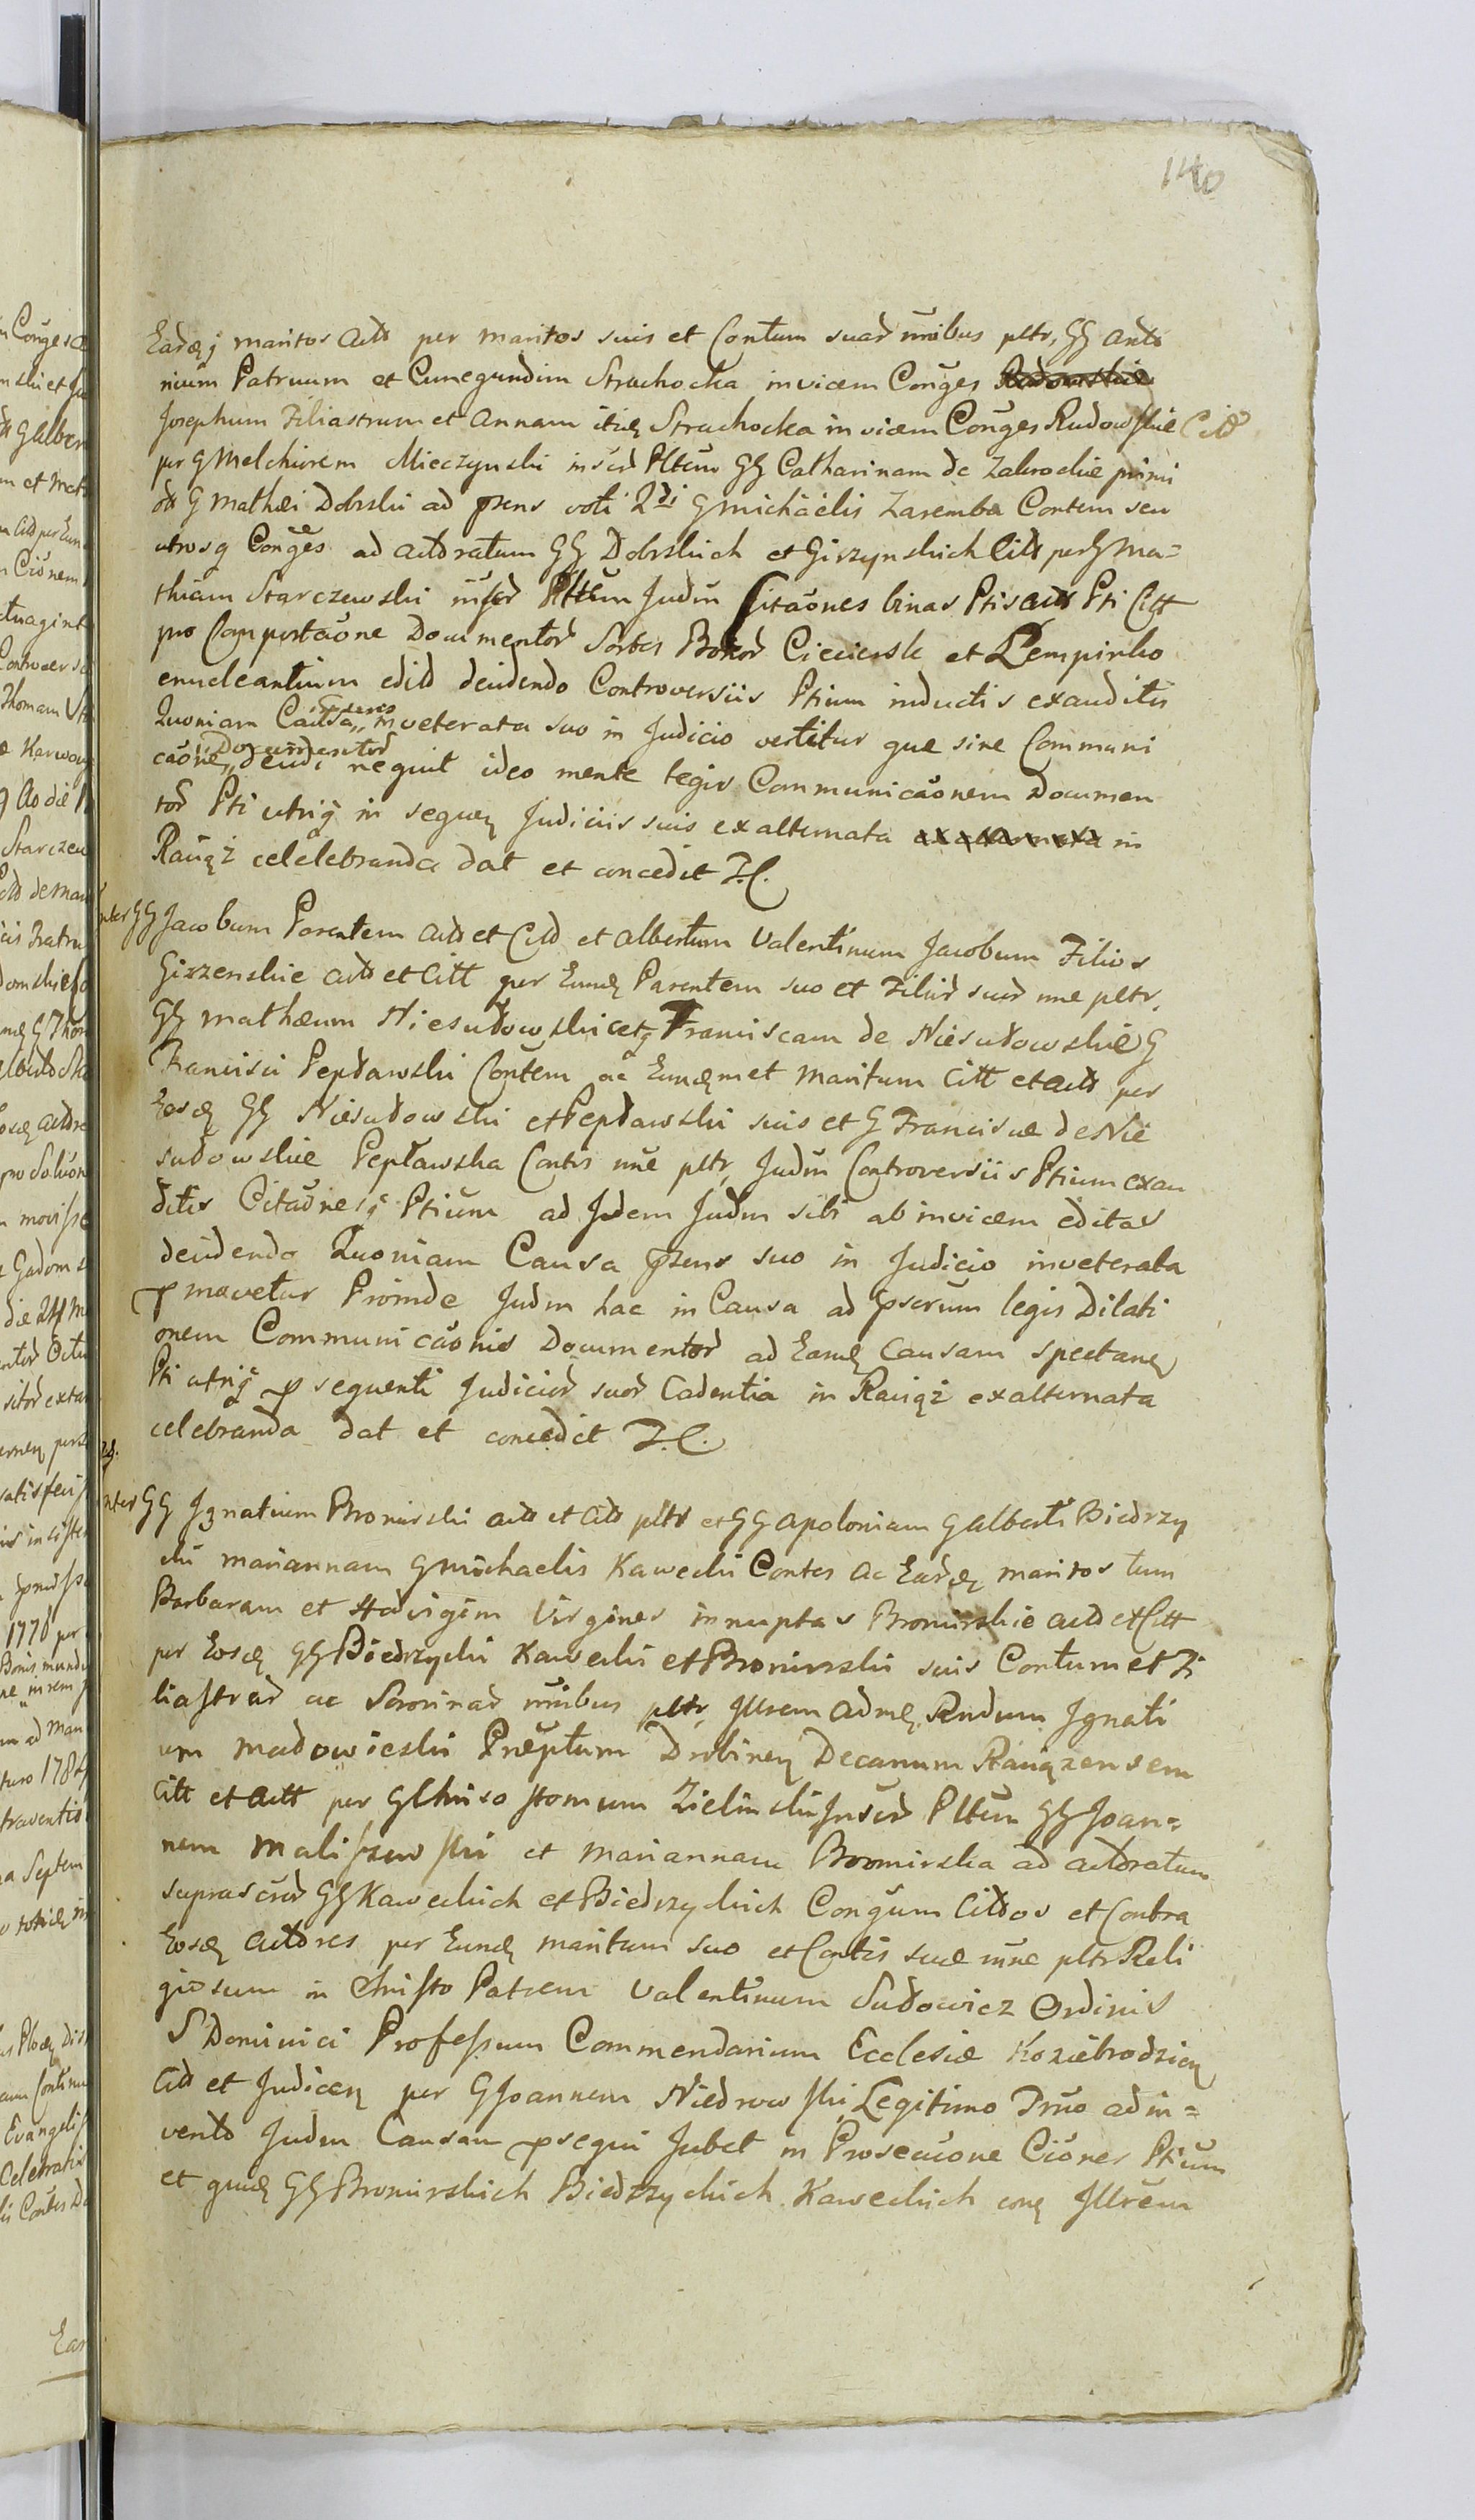 140
Earūq maritos Actt per maritos suis et Contum suar nnībus pltr, GG Anto
nium Patruum et Cunegundim Strachocka invicem Conges Rudowskie
Josephum Filiastrum et Annam itid Strachocka invicem Conges Rudowskie Citt
per G Melchiorem Mieczynski inscr Pltum GG Catharinam de Zakrockie primi
G Mathæi Dobrski ad præsens voti 2di G Michäelis Zaremba Contem seu
utrosq Conges ad actoratum GG Dobrskich et Giszynskich Citt per G Ma=
thiam Starczewski inscr Pltum Judm Citaones binas Ptis Actt Pti Citt
pro Comportaone Documentor Sortes Bonor Cieciersk et Lempinko
enucleantium edit decidendo Controversiis Ptium inductis exauditis
Quoniam Causa præsens inveterata suo in Judicio vertitur que sine Communi
caone Documentor decidi nequit ideo mente legis Communicaonem Documen
tor Pti utriq in sequen Judiciis suis exalternata exalternata in
Raciąż celelebranda dat et concedit J. C.
Inter GG Jacobum Parentem Actt et Citt et Albertum Valentinum Jacobum Filios
Gizzenskie Actt et Citt per Eund Parentem suo et Filior suor nne pltr,
GG Mathæum Niesudowski et G Franciscam de Niesudowskie G
Francisci Pepławski Contem ac Eundmet Maritum Citt et Actt per
Eosd GG Niesudowski et Pepławski suis et G Franciscæ de Nie
sudowskie Pepławska Contis nne pltr, Judm Controversiis Ptium exau
ditis Citaonesq Ptium ad Idem Judm sibi ab invicem editas
decidendo Quoniam Causa præsens suo in Judicio inveterata
promovetur Proinde Judm hac in Causa ad præscrum legis Dilati
onem Communicaonis Documentor ad Eamd Causam spectan
Pti utriq pro sequenti Judicior suor Cadentia in Raciąż exalternata
celebranda dat et concedit J. C.
Inter GG Ignatium Bromirski Actt et Citt pltr et GG Apoloniam G Alberti Biedrzy
cki Mariannam G Michaelis Kawecki Contes ac Earūd maritos tum
Barbaram et Hedvigim Virgines innuptas Bromirskie Actt et Citt
per Eosd GG Biedrzycki Kawecki et Bromirski suis Contum et Fi
liastrar ac Sororinar nnibus pltr, Illrem Admd Rndum Ignati
um Madowieski Præptum Drobinen Decanum Raciązensem
Citt et Actt per G Chrisostomum Zielinski Inscr Pltum GG Joan=
nem Maliszewski et Mariannam Bromirska ad Actoratum
suprascr GG Kaweckich et Biedrzyckich Congum Cittos et Contra
Eosd Actores per Eund maritum suo et Contis suæ nne pltr Reli
giosum in Christo Patrem Valentinum Sudowicz Ordinis
S Dominici Professum Commendarium Ecclesiæ Koziebrodzien
Citt et Judicen per G Joannem Niedrowski Legitimo Trno adin=
vento Judm Causam prosequi Jubet in Prosecuone Ciones Ptium
et quid GG Bromirskich Biedrzyckich Kaweckich con Illrem